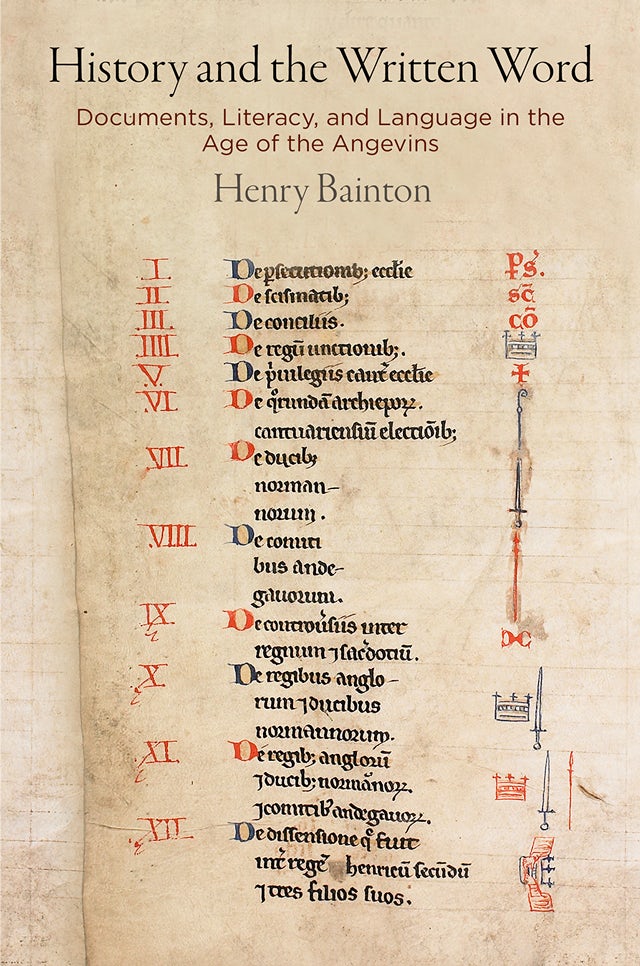 History and the Written Word
Documents, Literacy, and Language in the
Age of the Angevins
Henry Bainton
I De psecutionib; eccl̄ie p̄s.
II De scismatib; sc̄
III De conciliis. cō
IIII De regū unctionib;.
V De p̓uilegiis cant̄ ecclie
VI De q̓rundā archiepoꝝ.
cantuariensiū electiōib;
VII De ducib;
norman-
norum.
VIII De comiti
bus ande-
gauorum.
IX De controu̓siis inter
regnum ⁊ sac̓dotiū.
X De regibus anglo-
rum ⁊ ducibus
normannorum.
XI De regib; anglorū
⁊ ducib; normānoꝝ.
⁊ comitib̓ andegauoꝝ.
XII De dissensione q̄ fuit
int̄ regē henricū secūdū
⁊ tres filios suos.